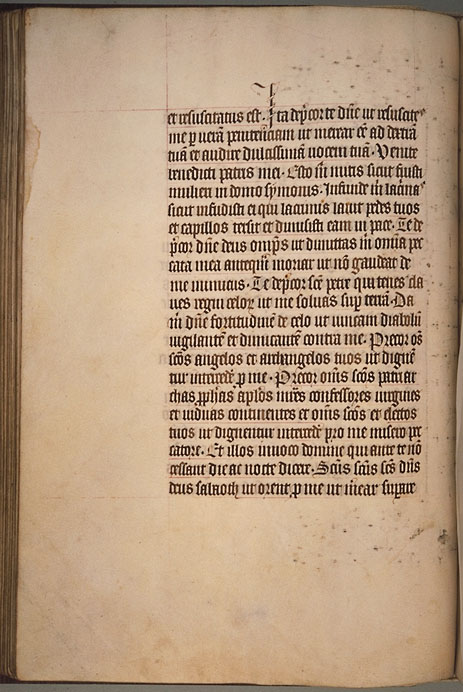 et resuscitatus est. Ita dep̄cor te dn̄e ut resuscites
me p̱ verā penitenciam ut merear cē ad dexterā
tuā et audire dulcissimā uocem tuā. Venite
benedicti patris mei. Esto m̄ mitis sicut fuisti
mulieri in domo symonis. Infunde m̄ lacrimas
sicut infudisti ei qui lacrimis lauit pedes tuos
et capillos tersit et dimisisti eam in pace. Te de
p̄cor dn̄e deus omp̄s ut dimittas m̄ omīa pec
cata mea anteq̄m moriar ut nō gaudeat de
me inimicus. Te dep̄cor sc̄e petre qui tenes cla
ues regni celoꝝ ut me soluas sup̱ terrā. Da
m̄ dn̄e fortitudinē de celo ut uincam diabolū
uigilantē et dimicantē contra me. Precor oēs
sc̄os angelos et archangelos tuos ut dignē
tur intercedē p̱ me. Precor omīs sc̄os patriar
chas p̱phetas ap̄los martires confessores uirgines
et uiduas continentes et omīs sc̄os et electos
tuos ut dignentur intercedē pro me misero pec
catore. Et illos inuoco domine qui ante te nō
cessant die ac nocte dicere. Scūs scūs scūs dn̄s
deus sabaoth ut orent p̱ me ut merear sup̱are